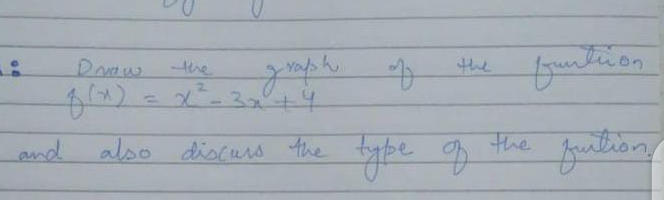 : Draw the graph of the funtion
f(x) = x² - 3x + 4
and also discuss the type of the funtion.